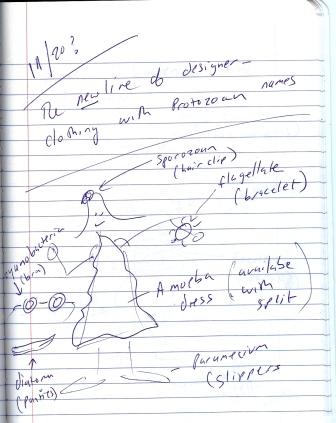 The new line of designer
clothing with Protozoan names
sporozoan
(hair clip)
flagellate
(bracelet)
cyanobacteria
(bra)
Amoeba
dress
(available
with
split)
diatoms
(panties)
Paramecium
(slippers